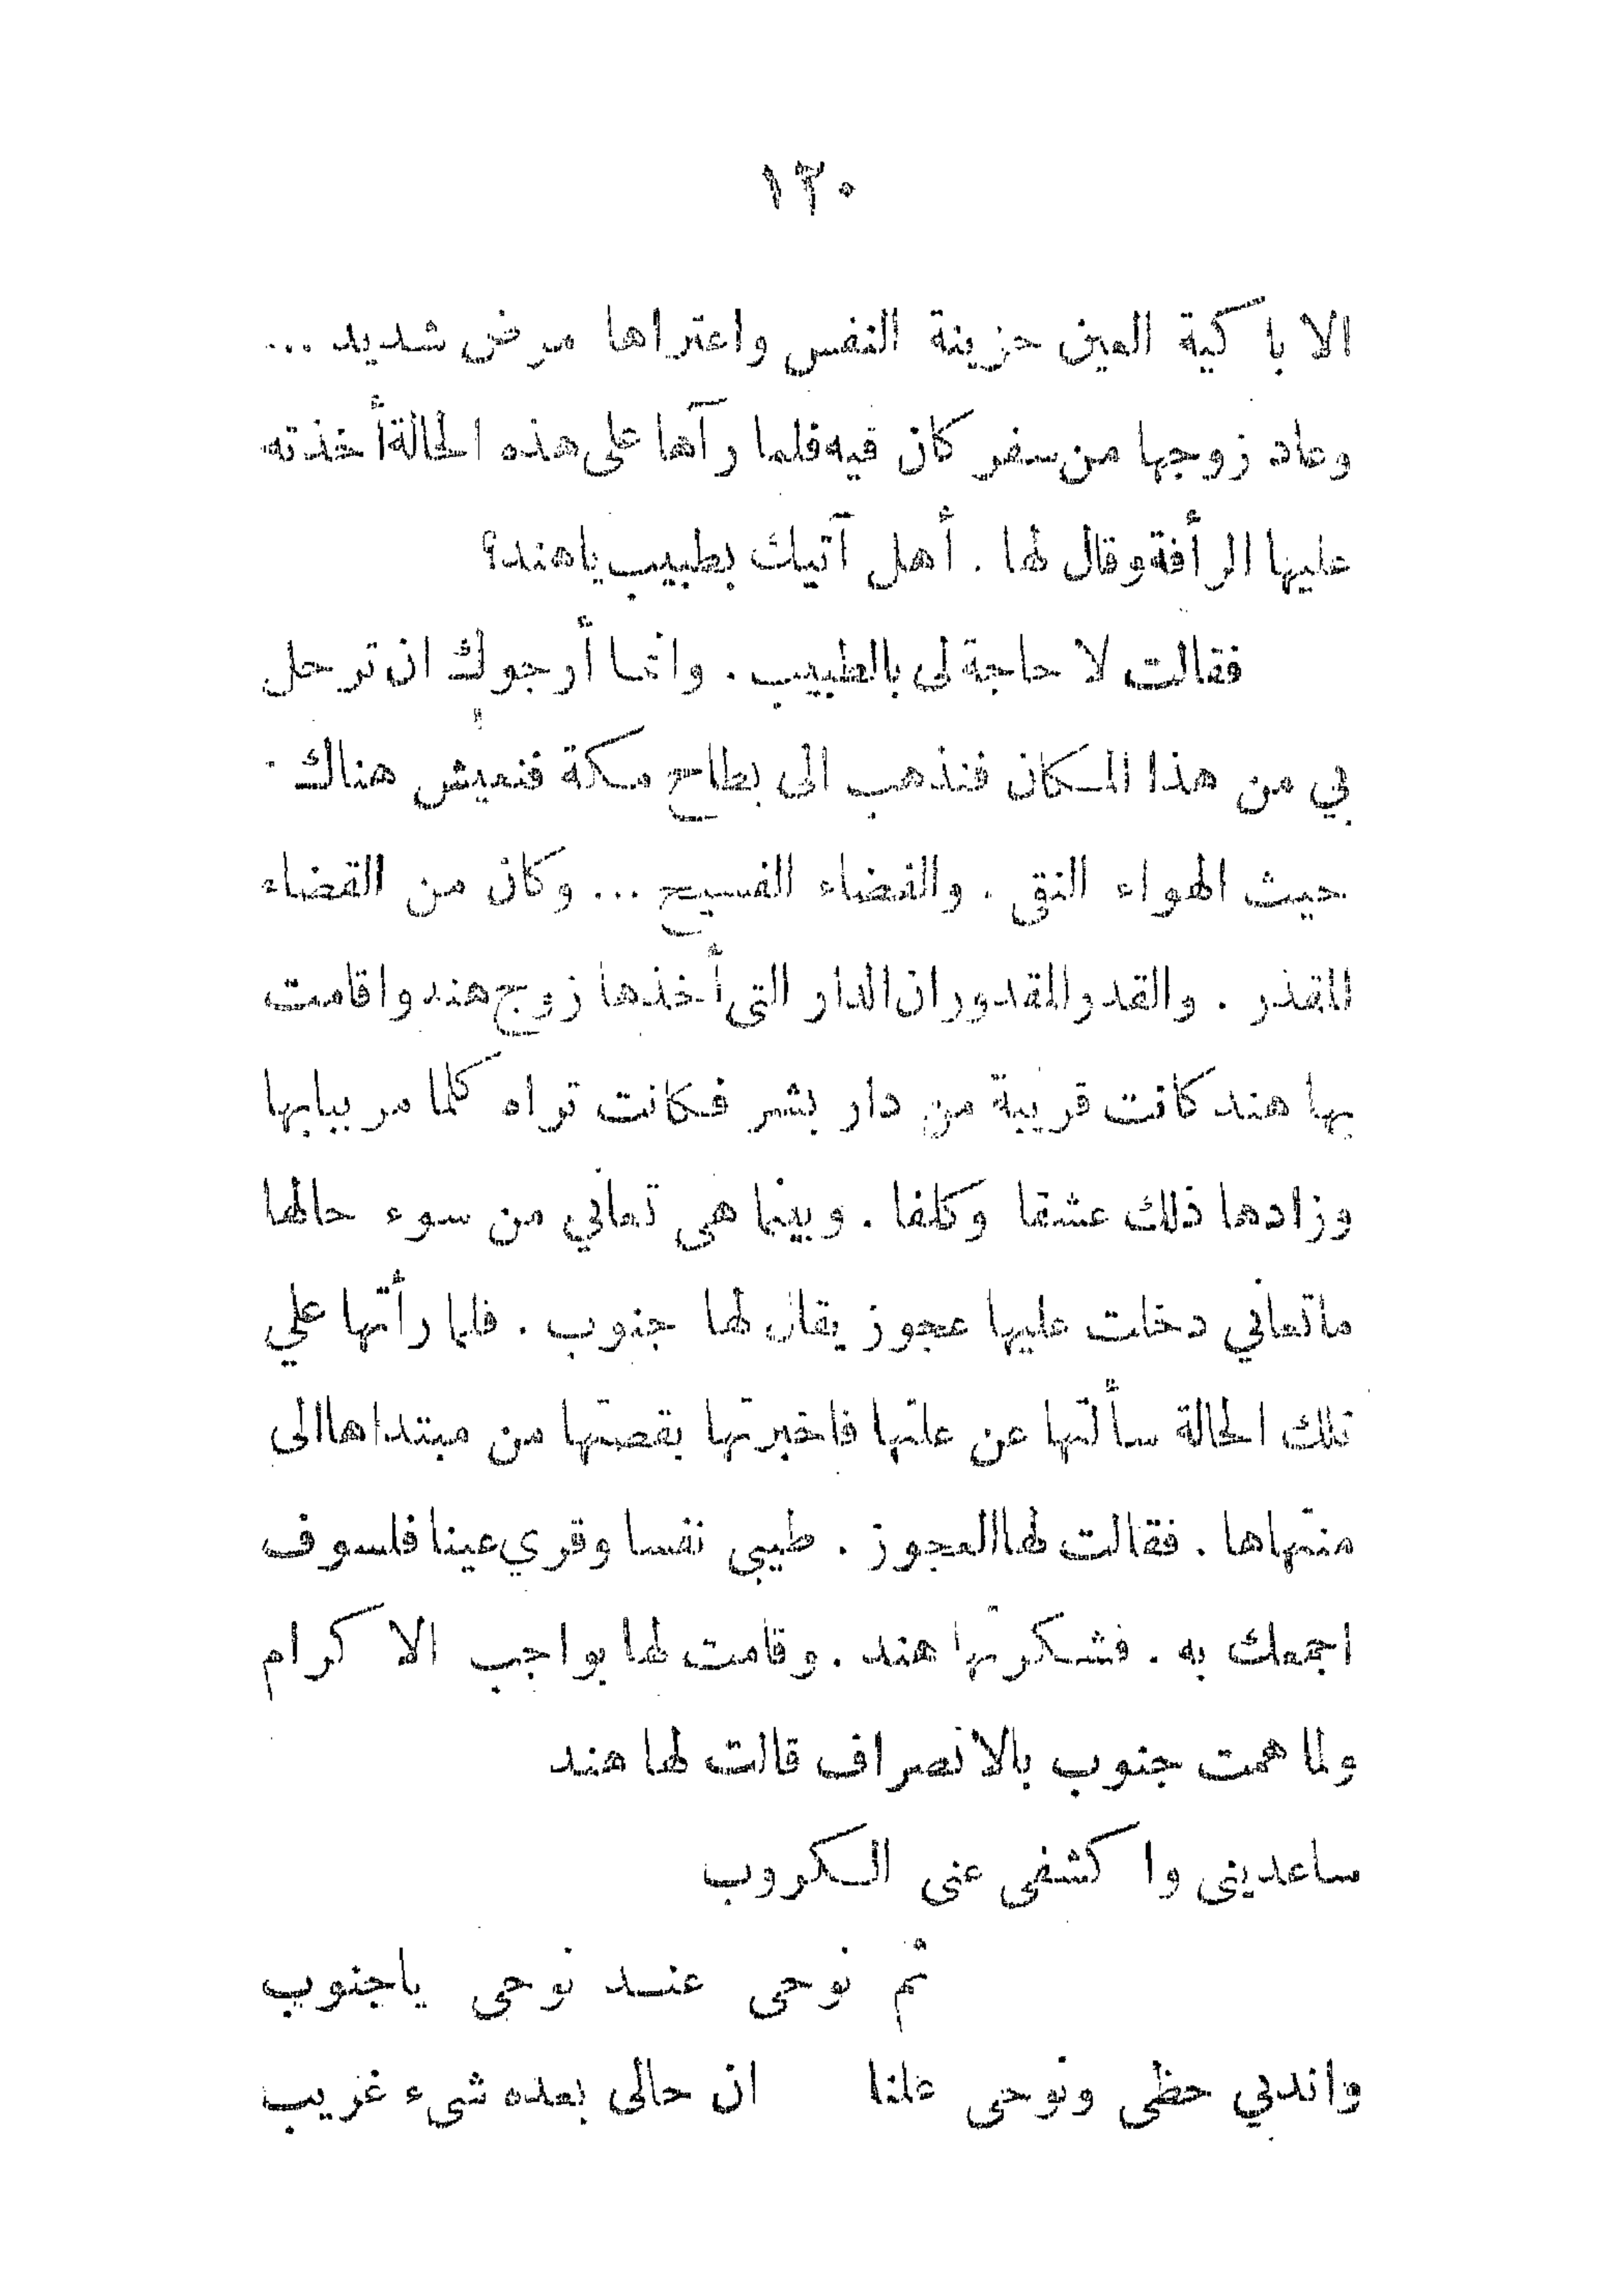 ١٣٠
الا باكية العين حزينة النفس واعتراها مرض شديد ...
وعاد زوجها من سفر كان فيه فلما رآها على هذه الحالة أخذته
عليها الرأفة وقال لها . أهل آتيك بطبيب ياهند؟
فقالت لا حاجة لى بالطبيب . وانما أرجوك ان ترحل
بي من هذا المكان فنذهب الى بطاح مكة فنعيش هناك .
حيث الهواء النقى . والفضاء الفسيح ... وكان من القضاء
المقذر . والقدر المقدور ان الدار التى أخذها زوج هند واقامت
بها هند كانت قريبة من دار بشر فكانت تراه كلما مر ببابها
وزادها ذلك عشقا وكلفا . وبينما هى تعاني من سوء حالها
ماتعاني دخلت عليها عجوز يقال لها جنوب . فلما رأتها علي
تلك الحالة سألتها عن علتها فاخبرتها بقصتها من مبتداها الى
منتهاها . فقالت لها العجوز . طيبى نفسا وقري عينا فلسوف
اجمعك به . فشكرتها هند . وقامت لها بواجب الاكرام
ولما همت جنوب بالانصراف قالت لها هند
ساعدينى واكشفى عنى الكروب
ثم نوحى عند نوحى ياجنوب
واندبي حظى ونوحى علنا ان حالى بعده شىء غريب